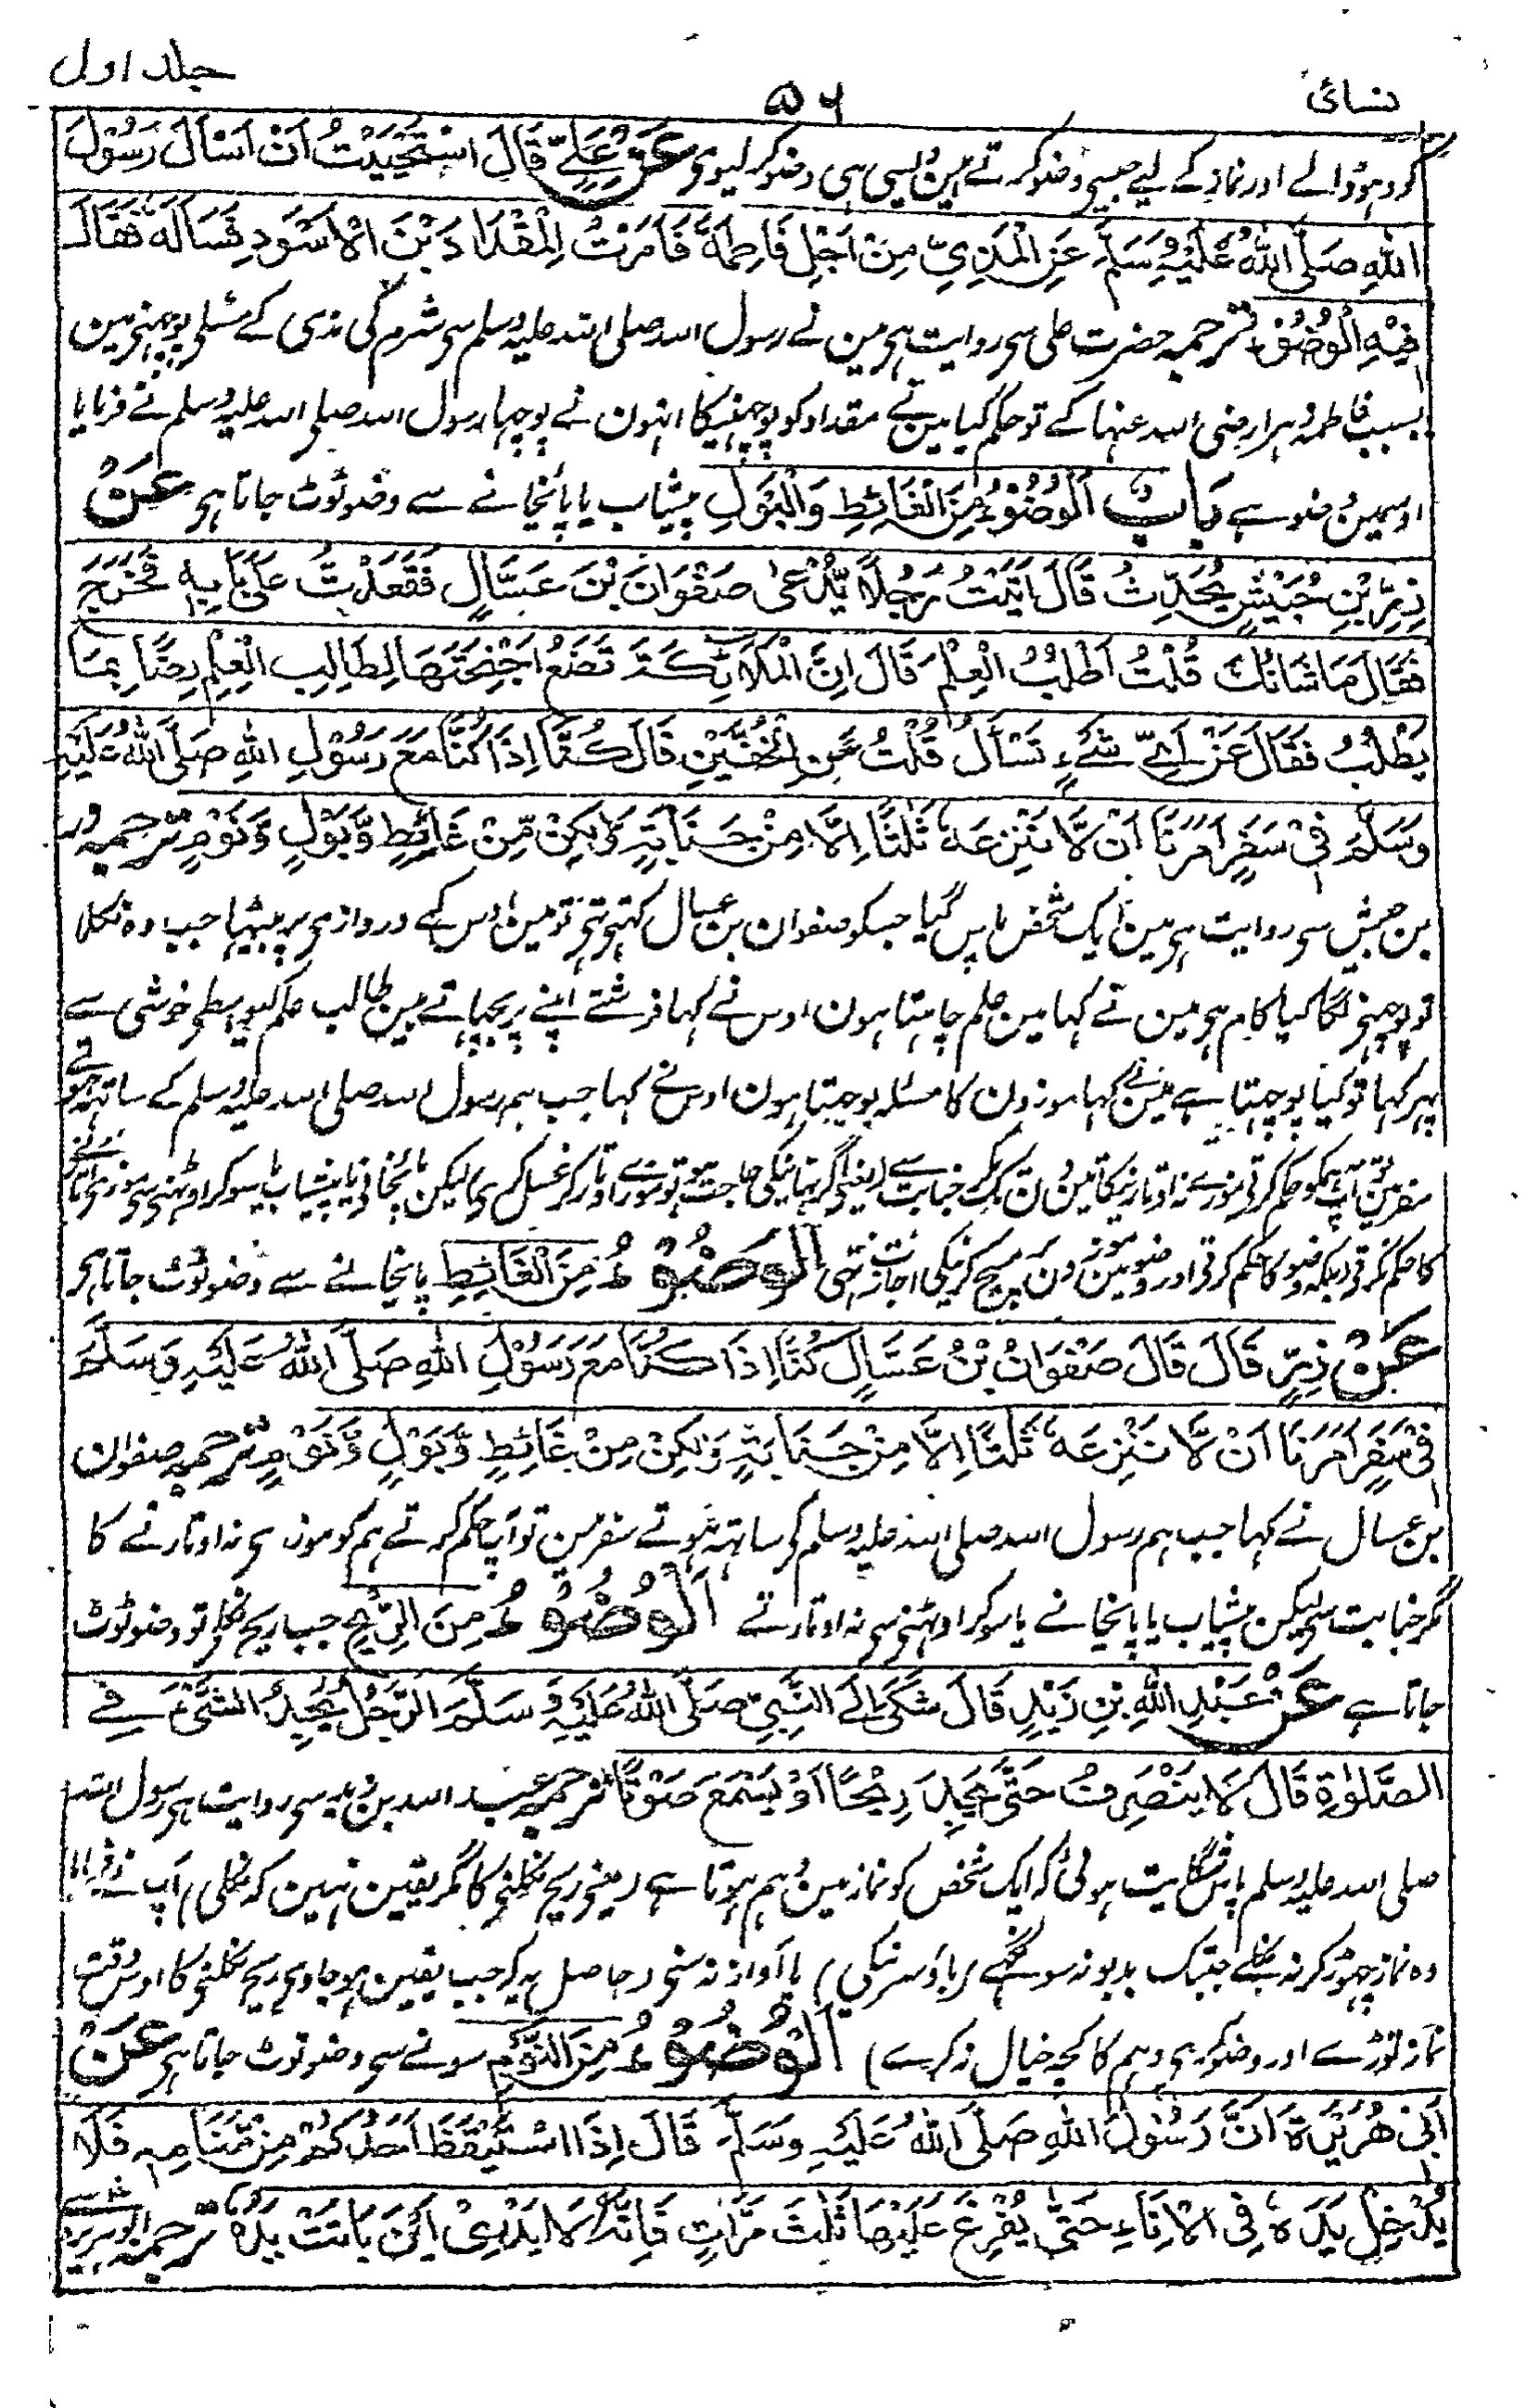 جلد اول
۵۶
نسائی
کو دہو ڈالے اور نماز کے لیے جیسے وضو کرتے ہین ویسی ہی وضو کر لیوی عَنْ عَلِيٍّ قَالَ اسْتَحْيَيْتُ اَنْ اَسْاَلَ رَسُوْلَ
اللّٰهِ صَلَّى اللّٰهُ عَلَيْهِ وَسَلَّمَ عَنِ الْمَذِيِّ مِنْ اَجْلِ فَاطِمَةَ فَاَمَرْتُ الْمِقْدَادَ بْنَ الْاَسْوَدِ فَسَاَلَهٗ فَقَالَ
فِيْهِ الْوُضُوْءُ ترجمہ حضرت علی سی روایت ہی مین نے رسول اللہ صلی اللہ علیہ وسلم سی شرم کی مذی کے مسئلی پوچہنی مین
بسبب فاطمہ زہرا رضی اللہ عنہا کے تو حکم کیا مین نے مقداد کو پوچہنیکا انہون نے پوچہا رسول اللہ صلی اللہ علیہ وسلم نے فرمایا
اوسمین وضو ہے بَابُ الْوُضُوْءِ مِنَ الْغَائِطِ وَالْبَوْلِ پیشاب یا پائخانے سے وضو ٹوٹ جاتا ہی عَنْ
زِرِّ بْنِ حُبَيْشٍ يُحَدِّثُ قَالَ اَتَيْتُ رَجُلًا يُّدْعٰى صَفْوَانَ بْنَ عَسَّالٍ فَقَعَدْتُ عَلٰى بَابِهٖ فَخَرَجَ
فَقَالَ مَا شَاْنُكَ قُلْتُ اَطْلُبُ الْعِلْمَ قَالَ اِنَّ الْمَلَائِكَةَ تَضَعُ اَجْنِحَتَهَا لِطَالِبِ الْعِلْمِ رِضًا بِمَا
يَطْلُبُ فَقَالَ عَنْ اَيِّ شَيْءٍ تَسْاَلُ قُلْتُ عَنِ الْخُفَّيْنِ قَالَ كُنَّا اِذَا كُنَّا مَعَ رَسُوْلِ اللّٰهِ صَلَّى اللّٰهُ عَلَيْهِ
وَسَلَّمَ فِيْ سَفَرٍ اَمَرَنَا اَنْ لَّا نَنْزِعَهٗ ثَلٰثًا اِلَّا مِنْ جَنَابَةٍ وَلٰكِنْ مِّنْ غَائِطٍ وَّبَوْلٍ وَّنَوْمٍ ترجمہ زر
بن حبیش سی روایت ہی مین ایک شخص پاس گیا جسکو صفوان بن عسال کہتی تہی تو مین اوس کے دروازی پر بیٹہا جب وہ نکلا
تو پوچہنی لگا کیا کام ہی مین نے کہا مین علم چاہتا ہون اوس نے کہا فرشتے اپنے پر بچہاتے ہین طالب علم کیواسطی خوشی سے
پہر کہا تو کیا پوچہتا ہے مینے کہا موزون کا مسئلہ پوچہتا ہون اوس نے کہا جب ہم رسول اللہ صلی اللہ علیہ وسلم کے ساتہہ ہوتے
سفر مین تو آپ ہمکو حکم کرتی موزے نہ اوتارنیکا تین دن تک مگر جنابت سے (یعنی اگر نہانیکی حاجت ہو تو موزے اوتار کر غسل کری) لیکن پائخانی یا پیشاب یا سو کر اوٹہنی سی موزی اوتارنے
کا حکم نکرتی بلکہ وضو کا حکم کرتی اور وضو مین موزون پر مسح کرنیکی اجازت تہی اَلْوُضُوْءُ مِنَ الْغَائِطِ پائخانے سے وضو ٹوٹ جاتا ہی
عَنْ زِرٍّ قَالَ قَالَ صَفْوَانُ بْنُ عَسَّالٍ كُنَّا اِذَا كُنَّا مَعَ رَسُوْلِ اللّٰهِ صَلَّى اللّٰهُ عَلَيْهِ وَسَلَّمَ
فِيْ سَفَرٍ اَمَرَنَا اَنْ لَّا نَنْزِعَهٗ ثَلٰثًا اِلَّا مِنْ جَنَابَةٍ وَلٰكِنْ مِنْ غَائِطٍ وَّبَوْلٍ وَّنَوْمٍ ترجمہ صفوان
بن عسال نے کہا جب ہم رسول اللہ صلی اللہ علیہ وسلم کی ساتہہ ہوتے سفر مین تو آپ حکم کرتے ہم کو موزہ سی نہ اوتارنے کا
مگر جنابت سی لیکن پیشاب یا پائخانے یا سو کر اوٹہنی سی نہ اوتارتے اَلْوُضُوْءُ مِنَ الرِّيْحِ جب ریح نکلی تو وضو ٹوٹ
جاتا ہے عَنْ عَبْدِ اللّٰهِ بْنِ زَيْدٍ قَالَ شُكِيَ اِلَى النَّبِيِّ صَلَّى اللّٰهُ عَلَيْهِ وَسَلَّمَ الرَّجُلُ يَجِدُ الشَّيْءَ فِي
الصَّلٰوةِ قَالَ لَا يَنْصَرِفْ حَتّٰى يَجِدَ رِيْحًا اَوْ يَسْمَعَ صَوْتًا ترجمہ عبد اللہ بن زید سی روایت ہی رسول اللہ
صلی اللہ علیہ وسلم پاس شکایت ہوئی کہ ایک شخص کو نماز مین وہم ہوتا ہے (یعنی ریح نکلنی کا مگر یقین نہین کہ نکلی) آپ نے فرمایا
وہ نماز چہوڑ کر نہ نکلے جبتک بدبو نہ سونگہے (باؤ سرنیکی) یا آواز نہ سنی (حاصل یہ کہ جب یقین ہو جاوی ریح نکلنی کا اوس وقت
نماز توڑے اور وضو کری وہم کا کچہ خیال نہ کرے) اَلْوُضُوْءُ مِنَ النَّوْمِ سونے سی وضو ٹوٹ جاتا ہی عَنْ
اَبِيْ هُرَيْرَةَ اَنَّ رَسُوْلَ اللّٰهِ صَلَّى اللّٰهُ عَلَيْهِ وَسَلَّمَ قَالَ اِذَا اسْتَيْقَظَ اَحَدُكُمْ مِنْ مَّنَامِهٖ فَلَا
يُدْخِلْ يَدَهٗ فِي الْاِنَاءِ حَتّٰى يُفْرِغَ عَلَيْهَا ثَلٰثَ مَرَّاتٍ فَاِنَّهٗ لَا يَدْرِيْ اَيْنَ بَاتَتْ يَدُهٗ ترجمہ ابوہریرہ سے